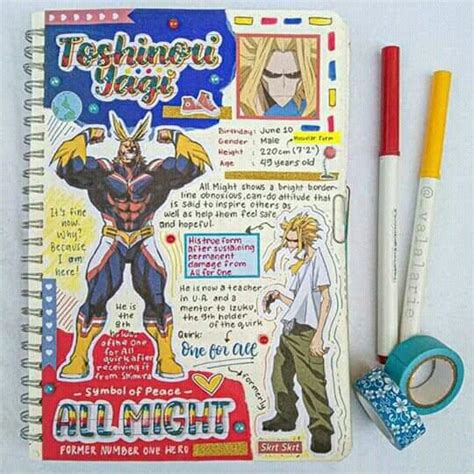 Toshinori
Yagi
Birthday: June 10
Gender: Male
Muscular Form
Height: 220cm (7'2")
Age: 49 years old
All Might shows a bright border-
line obnoxious, can-do attitude that
is said to inspire others as
well as help them feel safe
and hopeful.
It's fine
now.
Why?
Because
I am
here!
His true form
after sustaining
permanent
damage from
All for One
He is now a teacher
in U.A and a
mentor to Izuku,
the 9th holder
of the quirk
Quirk:
One for All
formerly
He is
the
8th
of the One
for All
quirk after
receiving it
from Shimura
- Symbol of Peace -
ALL MIGHT
FORMER NUMBER ONE HERO
Skrt Skrt